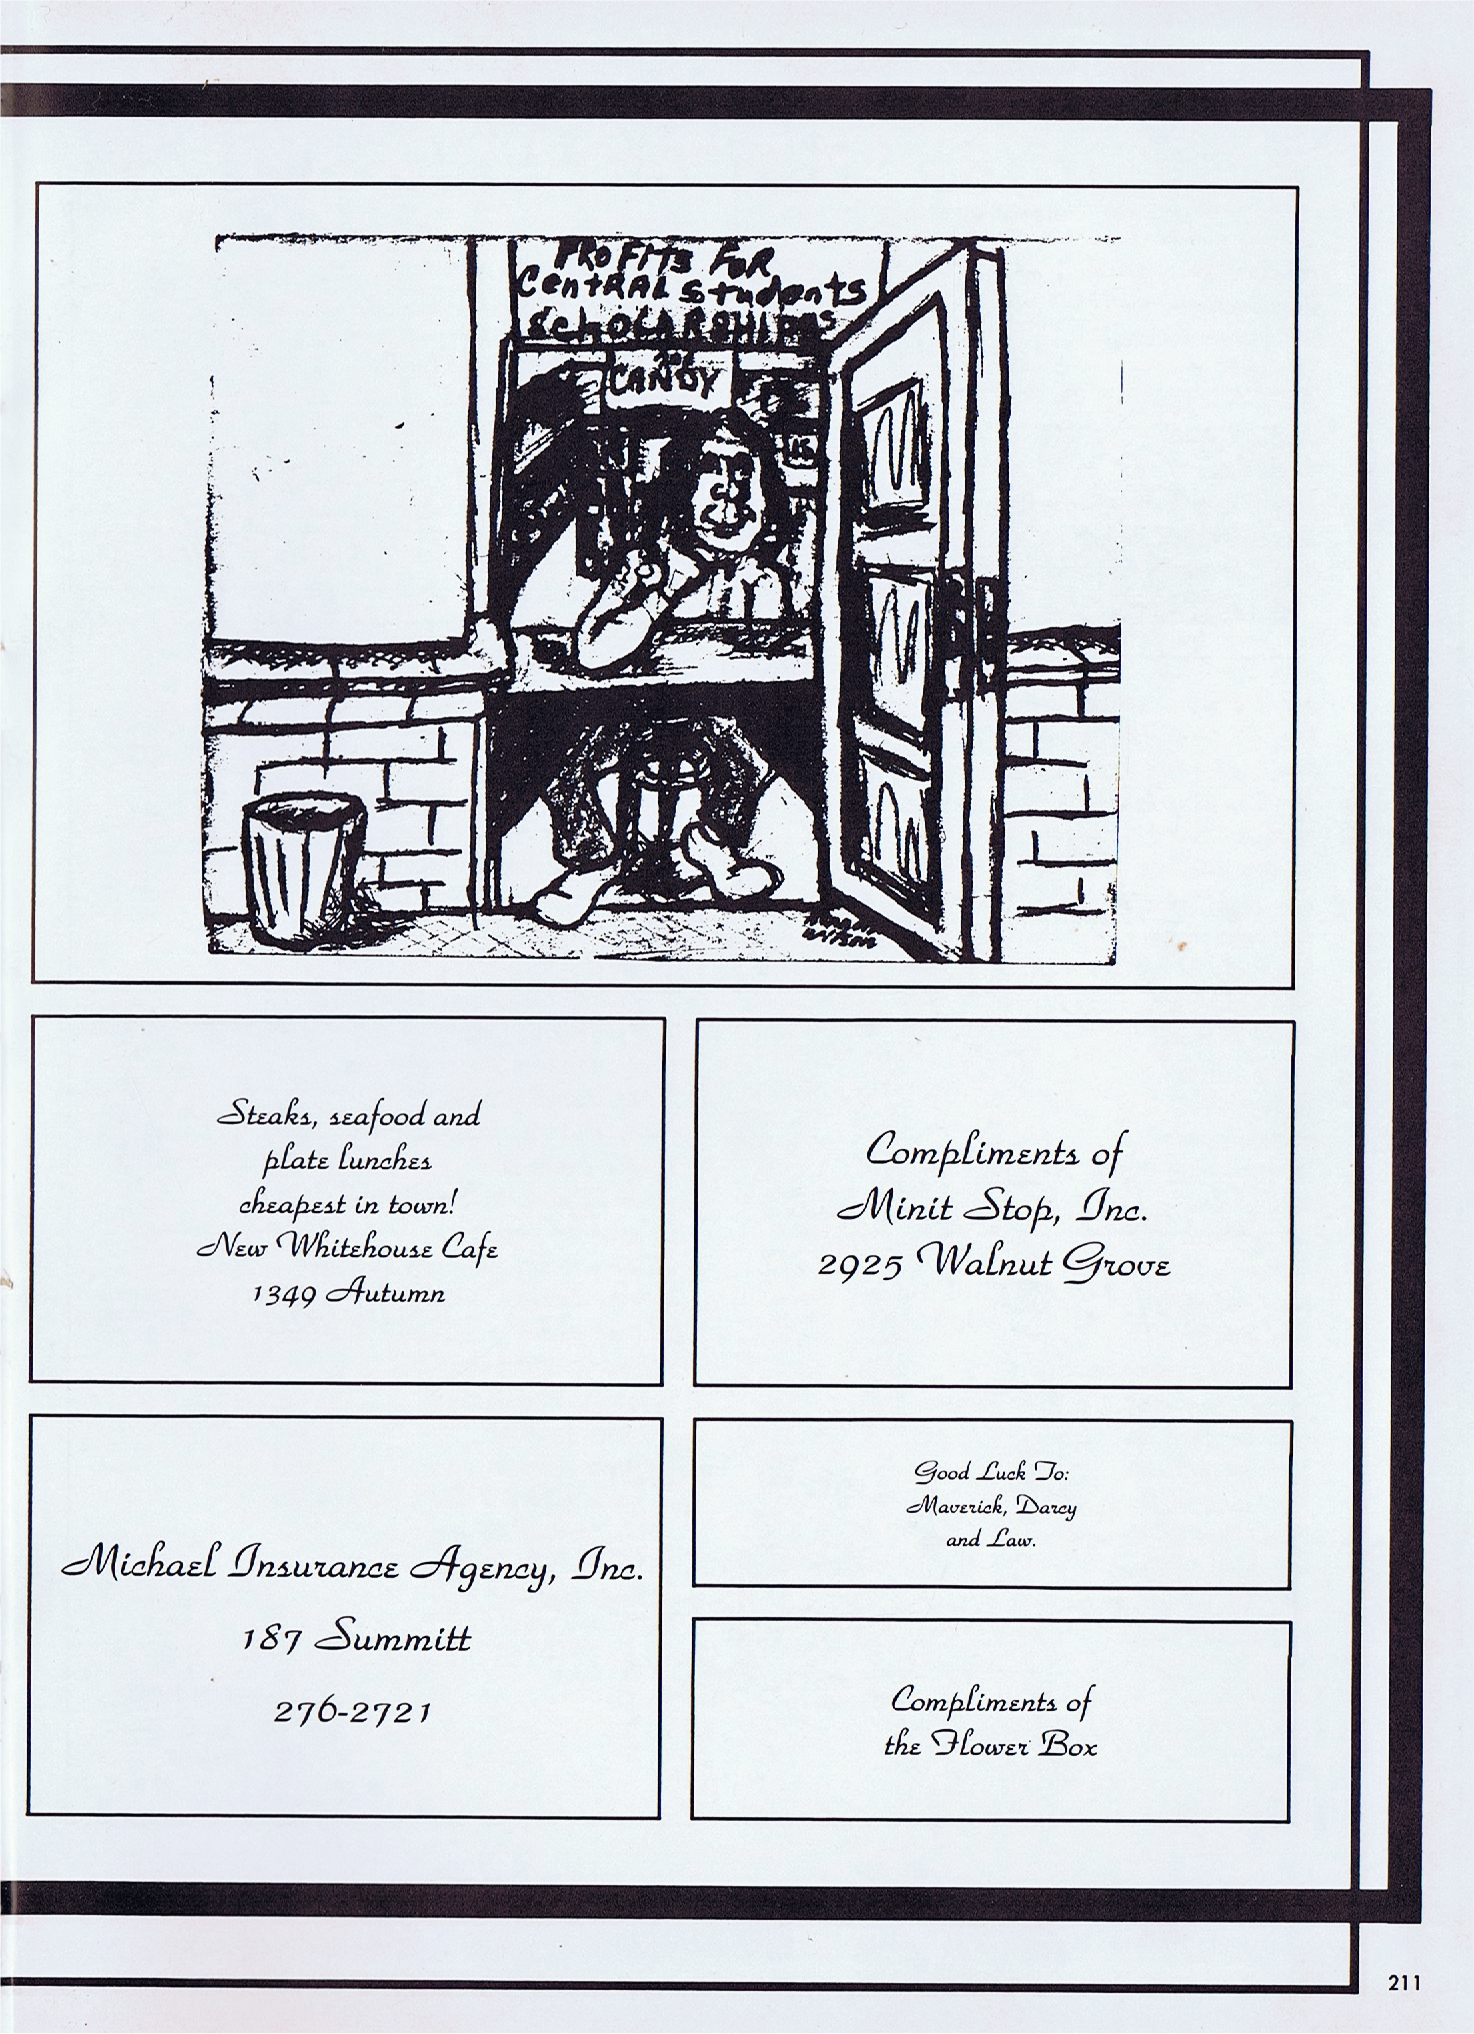 PROFITS FOR
CENTRAL Students
SCHOLARSHIPS
CANDY
Wilson
Steaks, seafood and
plate lunches
cheapest in town!
New Whitehouse Cafe
1349 Autumn
Compliments of
Minit Stop, Inc.
2925 Walnut Grove
Michael Insurance Agency, Inc.
187 Summitt
276-2721
Good Luck To:
Maverick, Darcy
and Law.
Compliments of
the Flower Box
211